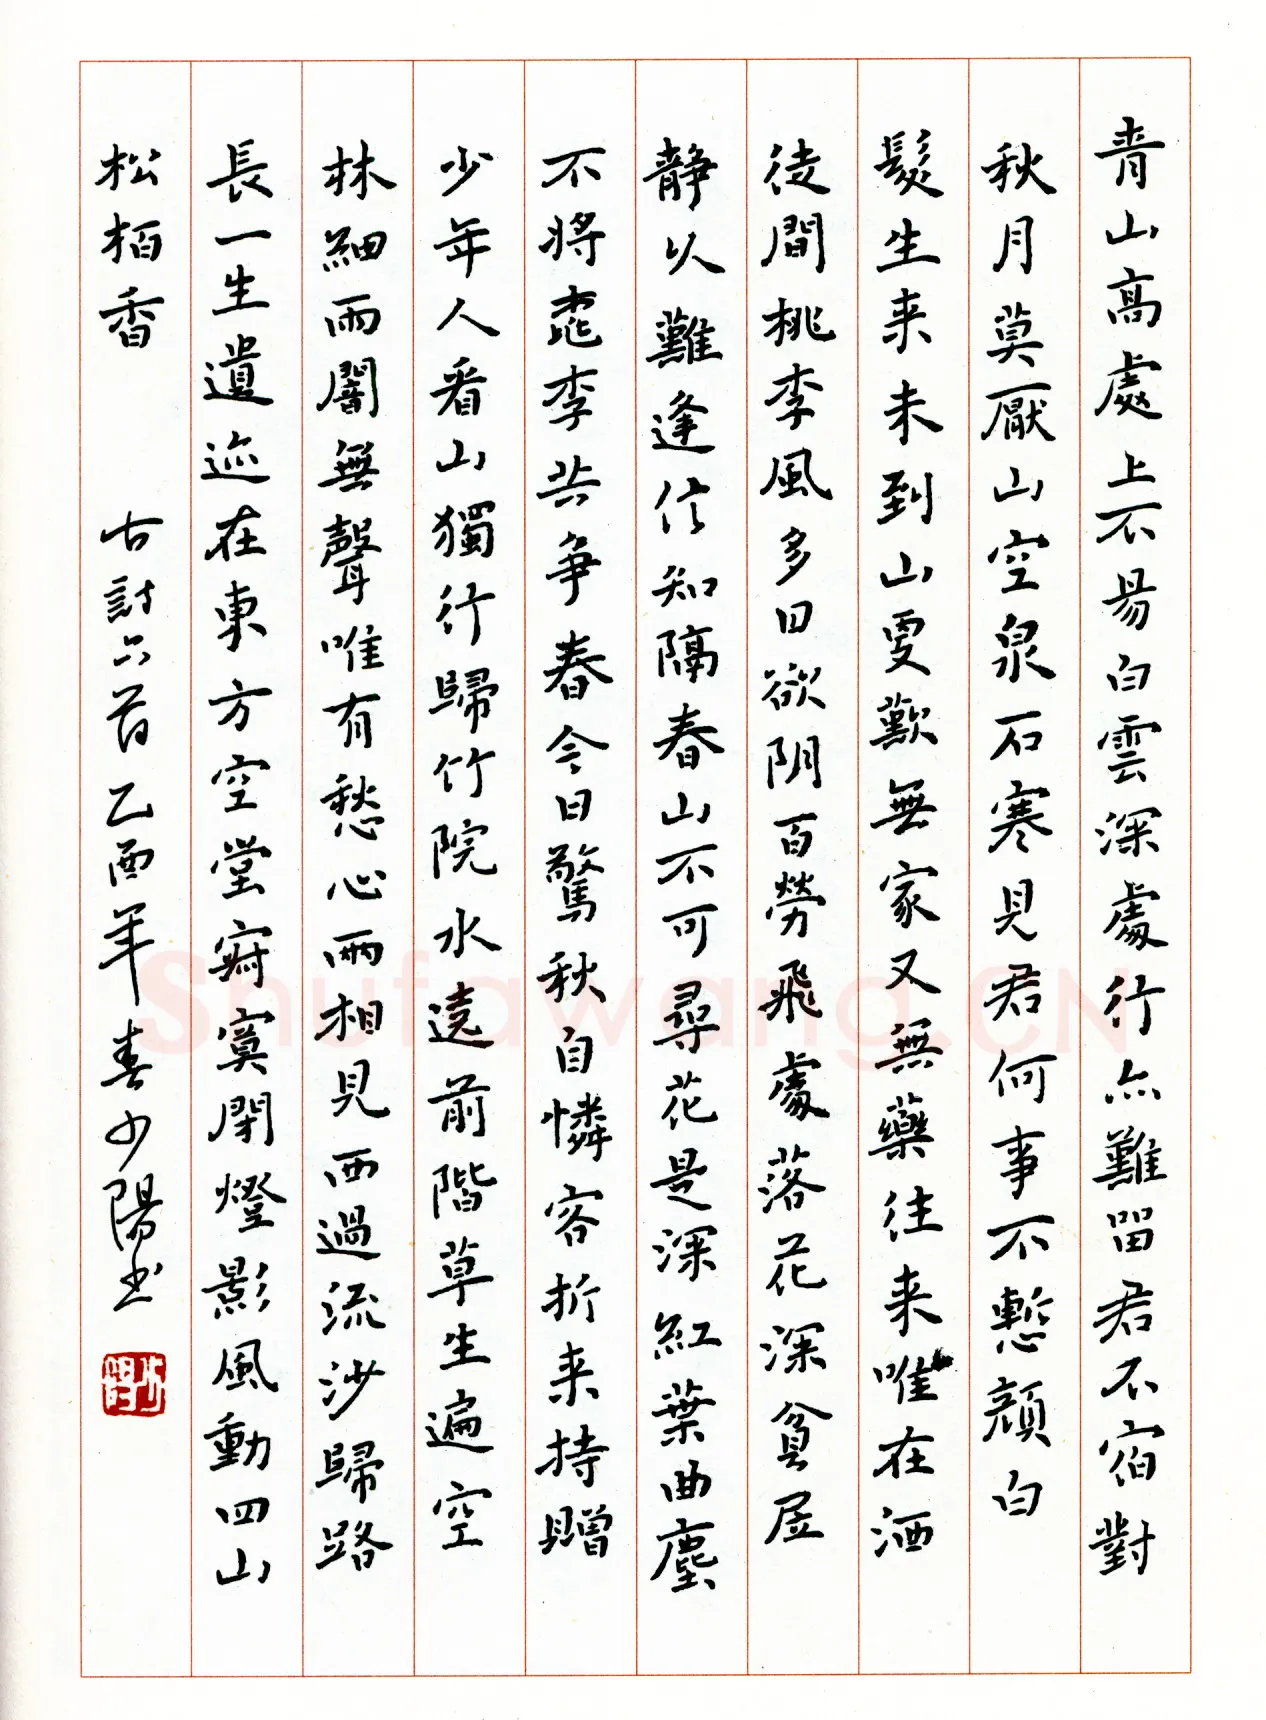 青山高處上不易白雲深處行亦難留君不宿對
秋月莫厭山空泉石寒見君何事不慙顏白
髮生来未到山更歎無家又無藥往来唯在酒
徒間桃李風多日欲阴百勞飛處落花深貧居
静以難逢信知隔春山不可尋花是深紅葉曲塵
不將桃李共争春今日驚秋自憐客折来持贈
少年人看山獨行歸竹院水遶前階草生遍空
林細雨闇無聲唯有愁心兩相見西過流沙歸路
長一生遺迹在東方空堂寂寞閉燈影風動四山
松栢香 古詩六首乙酉年春少陽书
少陽
Shufawang.CN